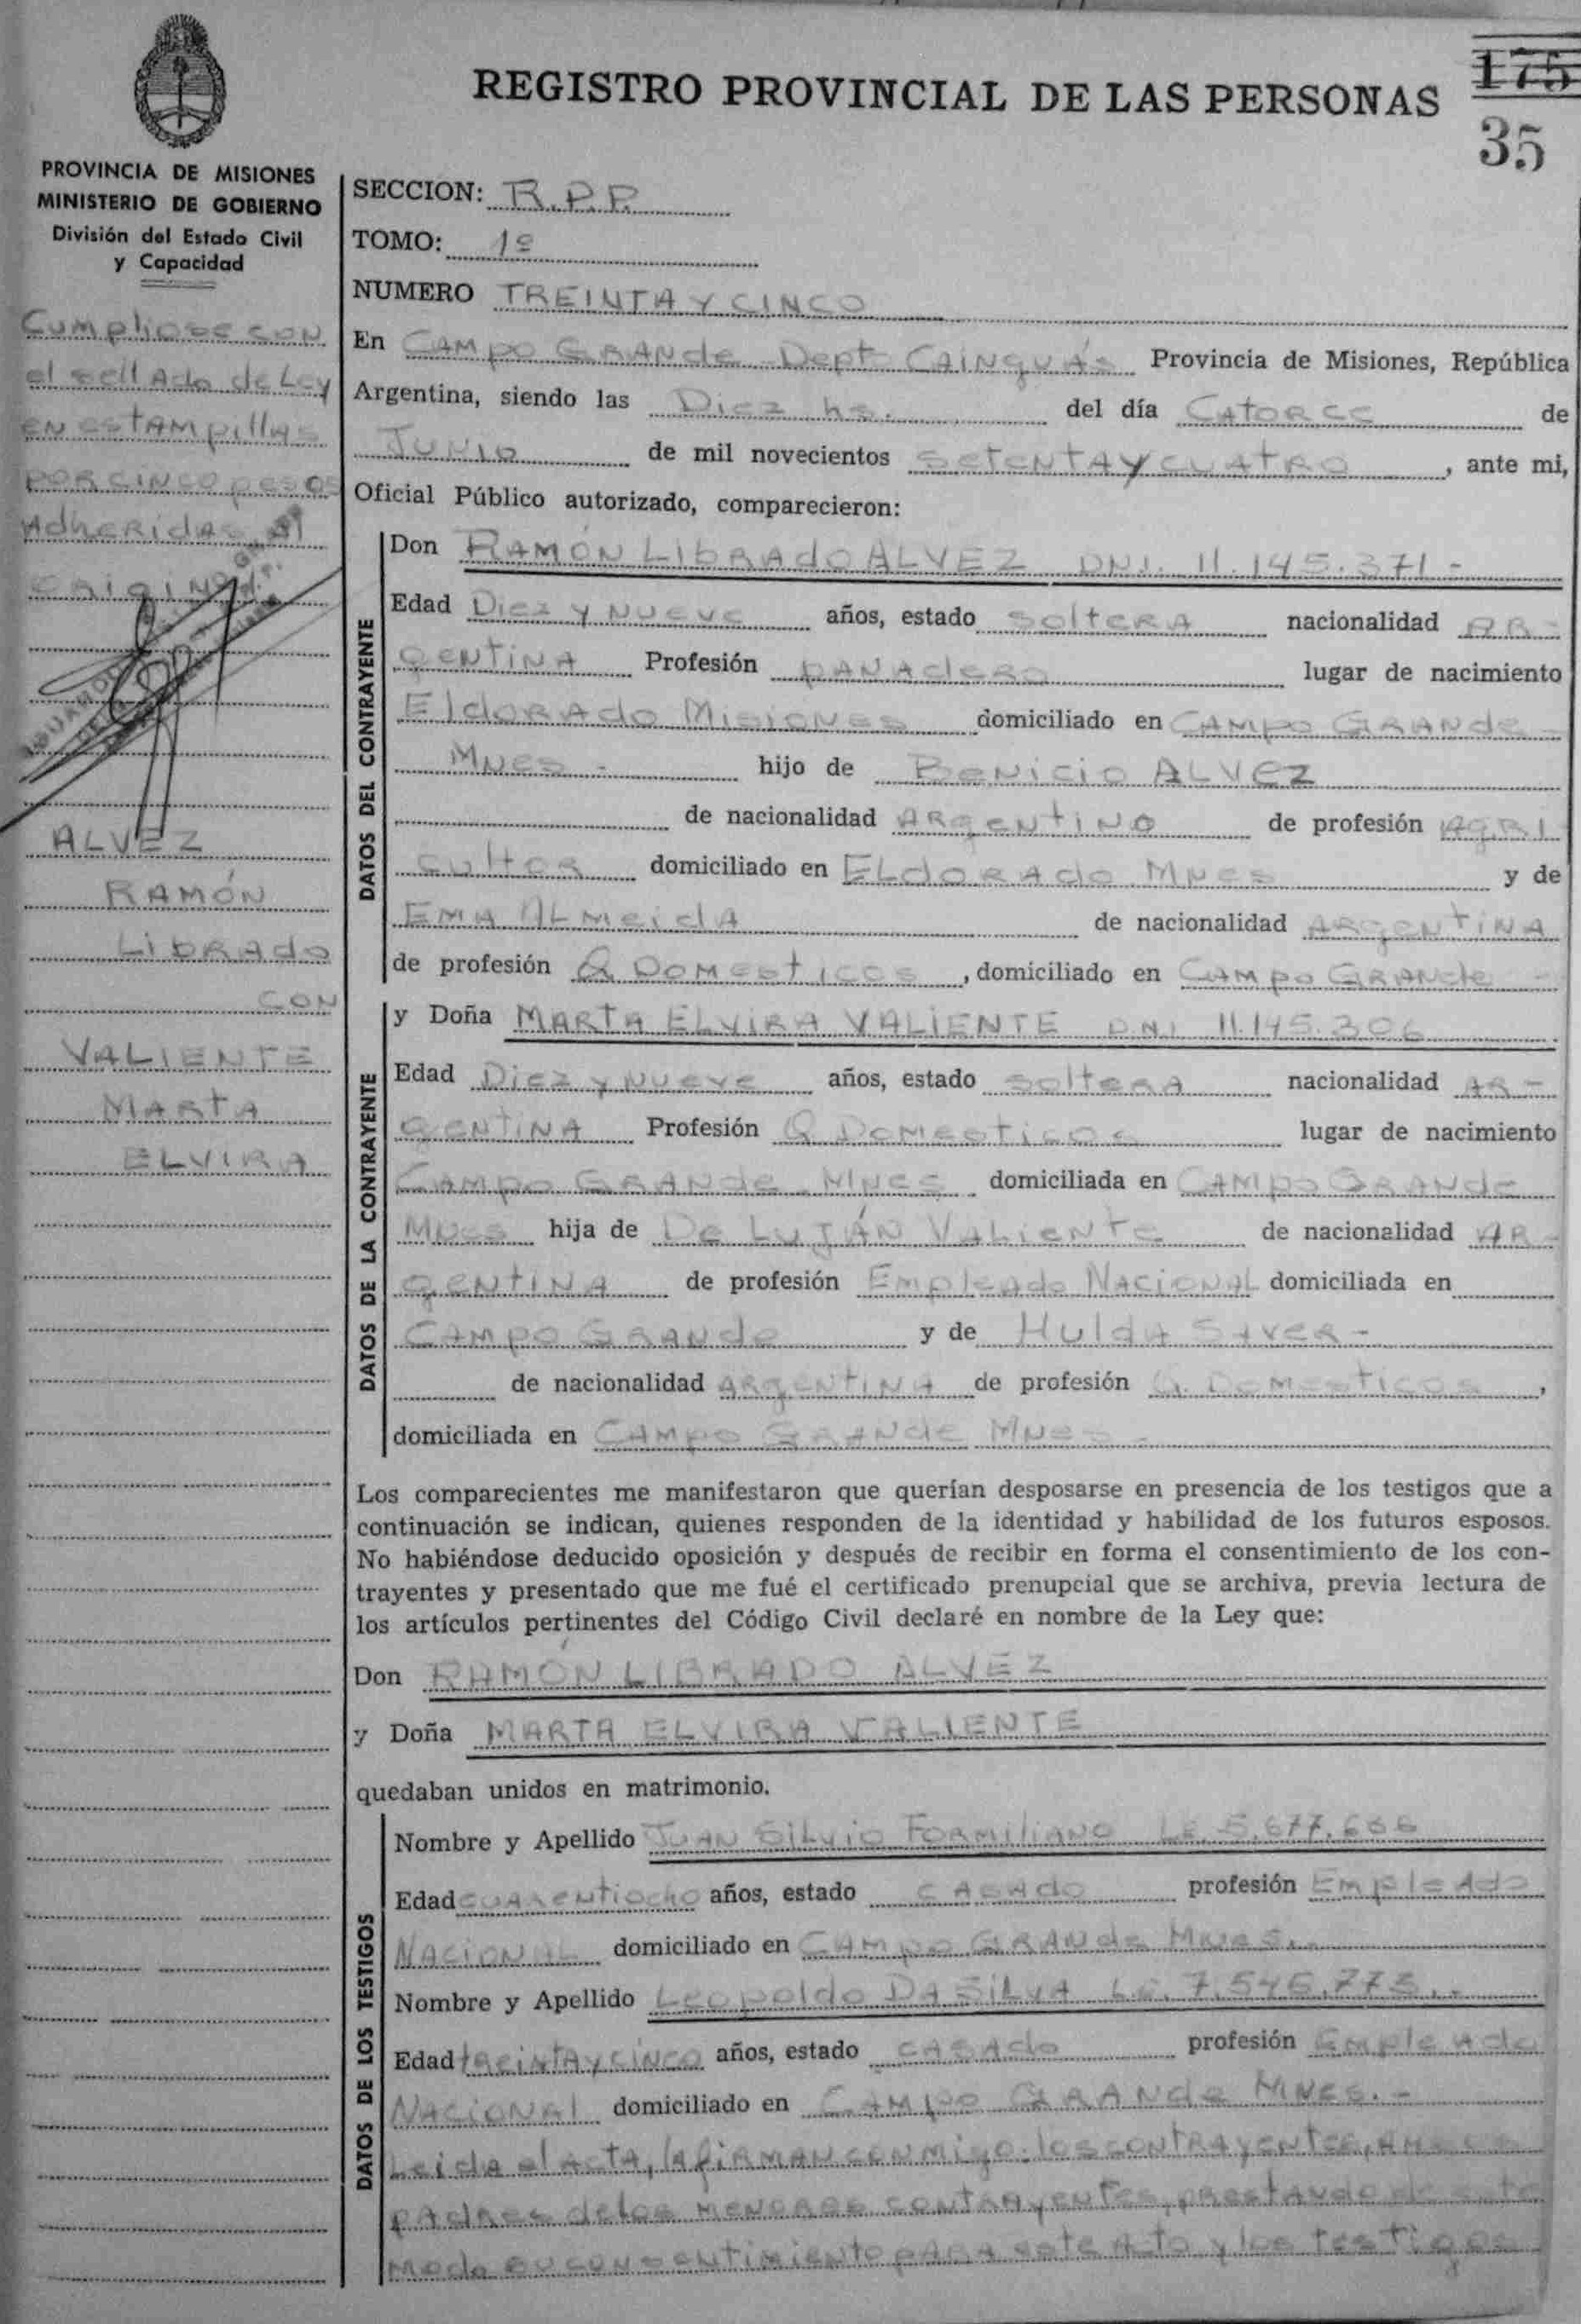 REGISTRO PROVINCIAL DE LAS PERSONAS
175
35
PROVINCIA DE MISIONES
MINISTERIO DE GOBIERNO
División del Estado Civil
y Capacidad
Cumpliose con
el sellado de Ley
en estampillas
por cinco pesos
Adheridas al
original
ALVEZ
RAMÓN
LIBRADO
CON
VALIENTE
MARTA
ELVIRA
SECCION: R.P.P.
TOMO: 1º
NUMERO TREINTA Y CINCO
En CAMPO GRANDE Dept CAINGUÁS Provincia de Misiones, República
Argentina, siendo las Diez hs. del día CATORCE de
JUNIO de mil novecientos SETENTA Y CUATRO, ante mi,
Oficial Público autorizado, comparecieron:
DATOS DEL CONTRAYENTE
Don RAMÓN LIBRADO ALVEZ DNI. 11.145.371 -
Edad Diez y NUEVE años, estado SOLTERA nacionalidad AR-
GENTINA Profesión PANADERO lugar de nacimiento
ELDORADO MISIONES domiciliado en CAMPO GRANDE -
MNES - hijo de BENICIO ALVEZ
de nacionalidad ARGENTINO de profesión AGRI
CULTOR domiciliado en ELDORADO MNES y de
EMA ALMEIDA de nacionalidad ARGENTINA
de profesión Q DOMESTICOS, domiciliado en CAMPO GRANDE -
DATOS DE LA CONTRAYENTE
y Doña MARTA ELVIRA VALIENTE D.N.I 11.145.306
Edad Diez y NUEVE años, estado SOLTERA nacionalidad AR-
GENTINA Profesión Q DOMESTICOS lugar de nacimiento
CAMPO GRANDE MNES domiciliada en CAMPO GRANDE
MNES hija de De LUJÁN VALIENTE de nacionalidad AR-
GENTINA de profesión EMPLEADO NACIONAL domiciliada en
CAMPO GRANDE y de HULDA SAVER -
de nacionalidad ARGENTINA de profesión Q. DOMESTICOS,
domiciliada en CAMPO GRANDE MNES -
Los comparecientes me manifestaron que querían desposarse en presencia de los testigos que a
continuación se indican, quienes responden de la identidad y habilidad de los futuros esposos.
No habiéndose deducido oposición y después de recibir en forma el consentimiento de los con-
trayentes y presentado que me fué el certificado prenupcial que se archiva, previa lectura de
los artículos pertinentes del Código Civil declaré en nombre de la Ley que:
Don RAMÓN LIBRADO ALVEZ
y Doña MARTA ELVIRA VALIENTE
quedaban unidos en matrimonio.
DATOS DE LOS TESTIGOS
Nombre y Apellido JUAN SILVIO FORMILIANO L.E. 5.677.656
Edad CUARENTIOCHO años, estado CASADO profesión EMPLEADO
NACIONAL domiciliado en CAMPO GRANDE MNES.-
Nombre y Apellido LEOPOLDO DA SILVA L.E. 7.546.773.-
Edad TREINTA Y CINCO años, estado CASADO profesión EMPLEADO
NACIONAL domiciliado en CAMPO GRANDE MNES.-
Leida el ACTA, la firman conmigo: los contrayentes, AMBOS
padres de los menores contrayentes, prestando de este
modo su consentimiento para este acto y los testigos